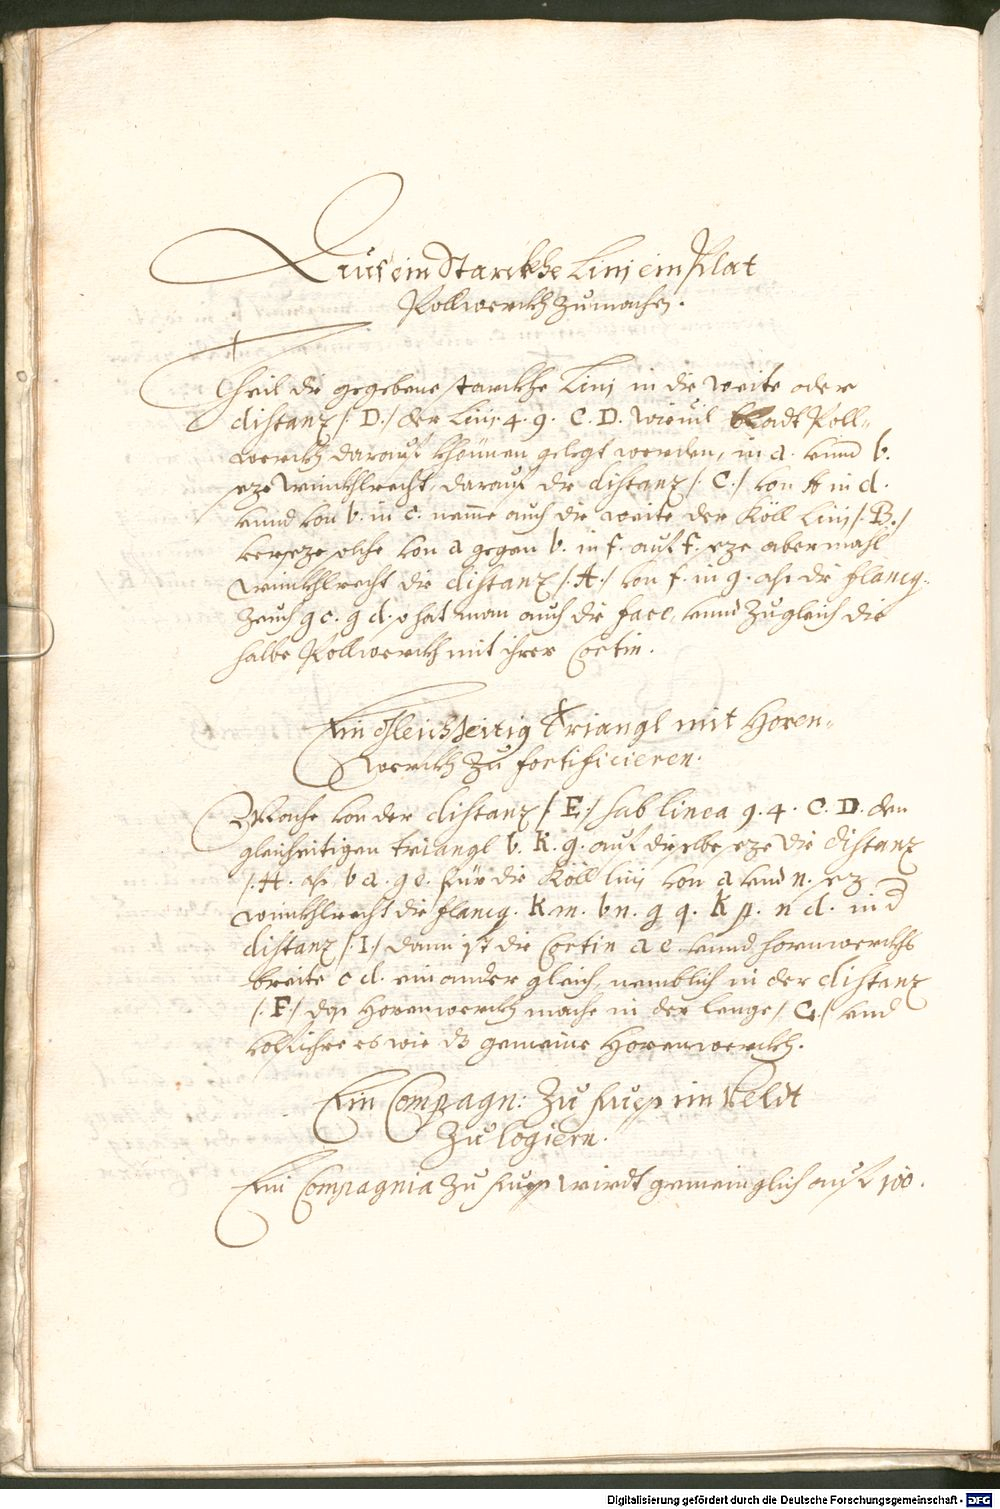 Auf ein Starckhe Linj ein Plat
Pollwerckh Zumachen.
Theil die gegebene starckhe Linj in die weite oder
distanz /. D./ der Linj 4. 9. C. D. wieuil bladt Poll=
werckh darauf khönnen gelegt werden, in a. vnnd b.
seze winckhlrecht, darauf die distanz /. C./ von A in d.
vnnd von b. in c. neme auch die weite der Köll Linj /. B./
verseze solche von a gegen b. in f. auf f. seze abermahl
winckhlrecht die distanz /. A./ von f. in g. also die flancq.
Zeuch g c. g d. so hat man auch die face, vnnd Zugleich die
halbe Pollwerckh mit ihrer Cortin.
Ein Gleichseitig Triangl mit Horen=
werckh Zu fortificieren.
Mache von der distanz /. E./ sub linea 9. 4. C. D. den
gleichseitigen triangl b. K. g. auf dieselbe seze die distanz
/. H. als b a. g e. für die Köll linj von a vnd n. sez
winckhlrecht die flancq. K m. b n. g q. K p. n d. in d
distanz /. I./ dann ist die Cortin a e vnnd hornwerckhs
breite c d. einander gleich, nemblich in der distanz
/. F./ das Horenwerckh mache in der lenge /. G./ vnd
volfihre es wie ds gemeine Horenwerckh.
Ein Compagn: Zu fuess im Veldt
Zu logiern.
Ein Compagnia Zu fuess wirdt gemeinglich auf 100.
Digitalisierung gefördert durch die Deutsche Forschungsgemeinschaft - DFG